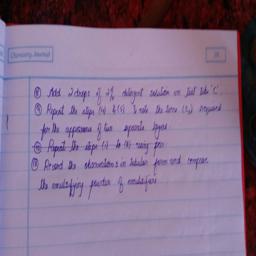 Chemistry Journal
⑧ Add 2 drops of 2% detergent solution in test tube 'C'.
⑨ Repeat the steps (4) & (5) & note the time (t₂) required
for the appearance of two separate layers.
⑩ Repeat the steps (7) to (9) using
⑪ Record the observations in tabular form and compare
the emulsifying power of emulsifiers